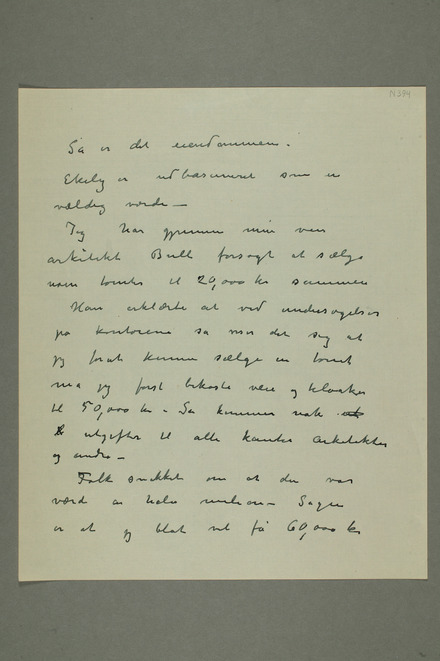 N 334
Så er det eiendommen.
Ekely er udbasuneret som en
vældig værdi —
Jeg har gjennem min ven
arkitekt Bull forsøgt at sælge
noen tomter til 20,000 kr sammen
Han erklærte at ved undersøgelser
på kontorene så viser det sig at
jeg forat kunne sælge en tomt
må jeg først bekoste veie og kloaker
til 50,000 kr – Så kommer nok
utgifter til alle kanter arkitekter
og andre –
Folk snakket om at den var
værd en halv million – Sagen
er at jeg blot vil få 60,000 kr